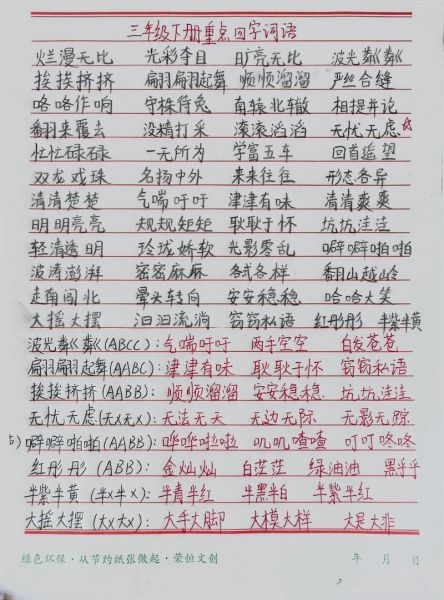 三年级下册重点四字词语
烂漫无比 光彩夺目 旷亮无比 波光粼粼
挨挨挤挤 翩翩起舞 顺顺溜溜 严丝合缝
咯咯作响 守株待兔 南辕北辙 相提并论
翻来覆去 没精打采 滚滚滔滔 无忧无虑
忙忙碌碌 一无所为 学富五车 回首遥望
双龙戏珠 名扬中外 来来往往 形态各异
清清楚楚 气喘吁吁 津津有味 清清爽爽
明明亮亮 规规矩矩 耿耿于怀 坑坑洼洼
轻清透明 玲珑娇软 光影零乱 噼噼啪啪
波涛澎湃 密密麻麻 各式各样 翻山越岭
走南闯北 晕头转向 安安稳稳 哈哈大笑
大摇大摆 汩汩流淌 窃窃私语 红彤彤 半紫半黄
波光粼粼(ABCC): 气喘吁吁 两手空空 白发苍苍
翩翩起舞(AABC): 津津有味 耿耿于怀 窃窃私语
挨挨挤挤(AABB): 顺顺溜溜 安安稳稳. 坑坑洼洼
无忧无虑(无x无x): 无法无天 无边无际 无影无踪
噼噼啪啪(AABB): 哗哗啦啦 叽叽喳喳 叮叮咚咚
红彤彤(ABB): 金灿灿 白茫茫 绿油油 黑乎乎
半紫半黄(半x半x): 半青半红 半黑半白 半紫半红
大摇大摆(大x大x): 大手大脚 大模大样 大是大非
绿色环保·从节约纸张做起·荣恒文创 年 月 日